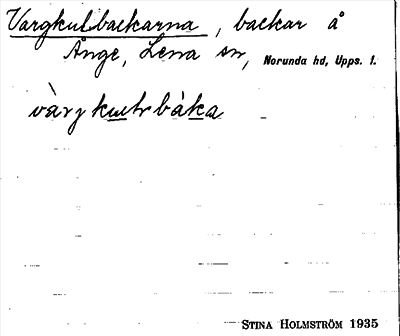 Vargkullbackarna, backar å
Ånge, Lena sn, Norunda hd, Upps. l.
STINA HOLMSTRÖM 1935